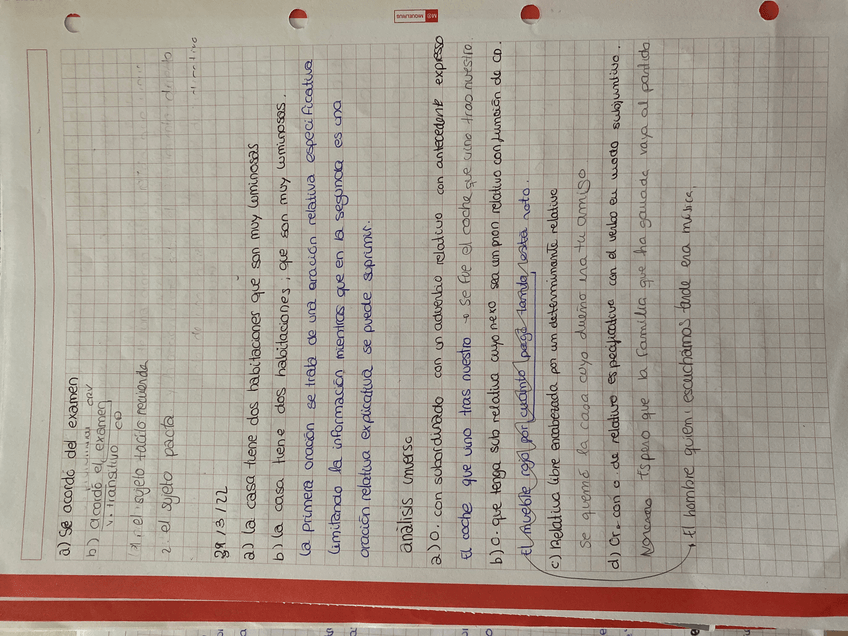 a) Se acordó del examen
CRV
b) acordó el examen
v. transitivo CD
1. el sujeto tácito recuerda
2. el sujeto pacta
29/3/22
a) La casa tiene dos habitaciones que son muy luminosas
b) La casa tiene dos habitaciones, que son muy luminosas.
La primera oración se trata de una oración relativa especificativa
limitando la información mientras que en la segunda es una
oración relativa explicativa se puede suprimir.
análisis inverso
a) O. con subordinado con un adverbio relativo con antecedente expreso
El coche que vino tras nuestro → Se fue el coche que vino tras nuestro.
b) O. que tenga sub relativa cuyo nexo sea un pron relativo con función de CD.
El mueble rojo por cuánto pagó tarda esta roto.
c) Relativa libre encabezada por un determinante relativo
Se quemó la casa cuyo dueño era tu amigo
d) Or. con o. de relativo especificativo con el verbo en modo subjuntivo.
Espero que la familia que ha ganado vaya al partido
El hombre quien escuchamos tarde era música.
MIQUELRIUS